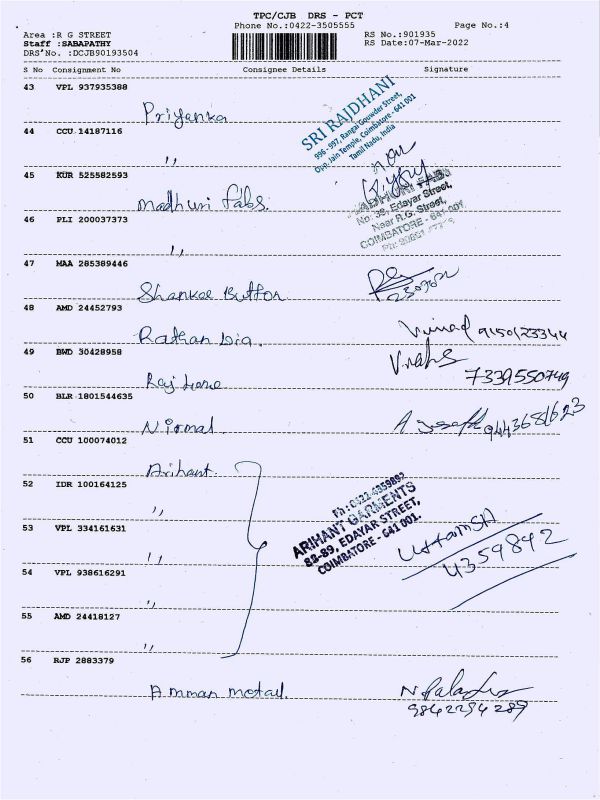 TPC/CJB DRS - PCT
Phone No.:0422-3505555 Page No.:4
Area :R G STREET RS No.:901935
Staff :SABAPATHY RS Date:07-Mar-2022
DRS No. :DCJB90193504
S No Consignment No Consignee Details Signature
43 VPL 937935388
Priyanka
SRI RAJDHANI
996 - 997, Rangai Gowder Street,
Opp. Jain Temple, Coimbatore - 641 001
Tamil Nadu, India
44 CCU 14187116
,,
45 KUR 525582593
Madhuri Fabs.
No: 38, Edayar Street,
Near R.G. Street,
COIMBATORE - 641 001
46 PLI 200037373
,,
47 MAA 285389446
Shankar Button
48 AMD 24452793
Rathan Dia.
Vimal 9150123344
49 BWD 30428958
Raj home
7339550749
50 BLR 1801544635
Nirmal
9443681623
51 CCU 100074012
Arihant.
52 IDR 100164125
,,
Ph : 0422-4359892
ARIHANT GARMENTS
88-89, EDAYAR STREET,
COIMBATORE - 641 001.
53 VPL 334161631
,,
UttamSh
4359892
54 VPL 938616291
,,
55 AMD 24418127
,,
56 RJP 2883379
Amman metal.
9842294289